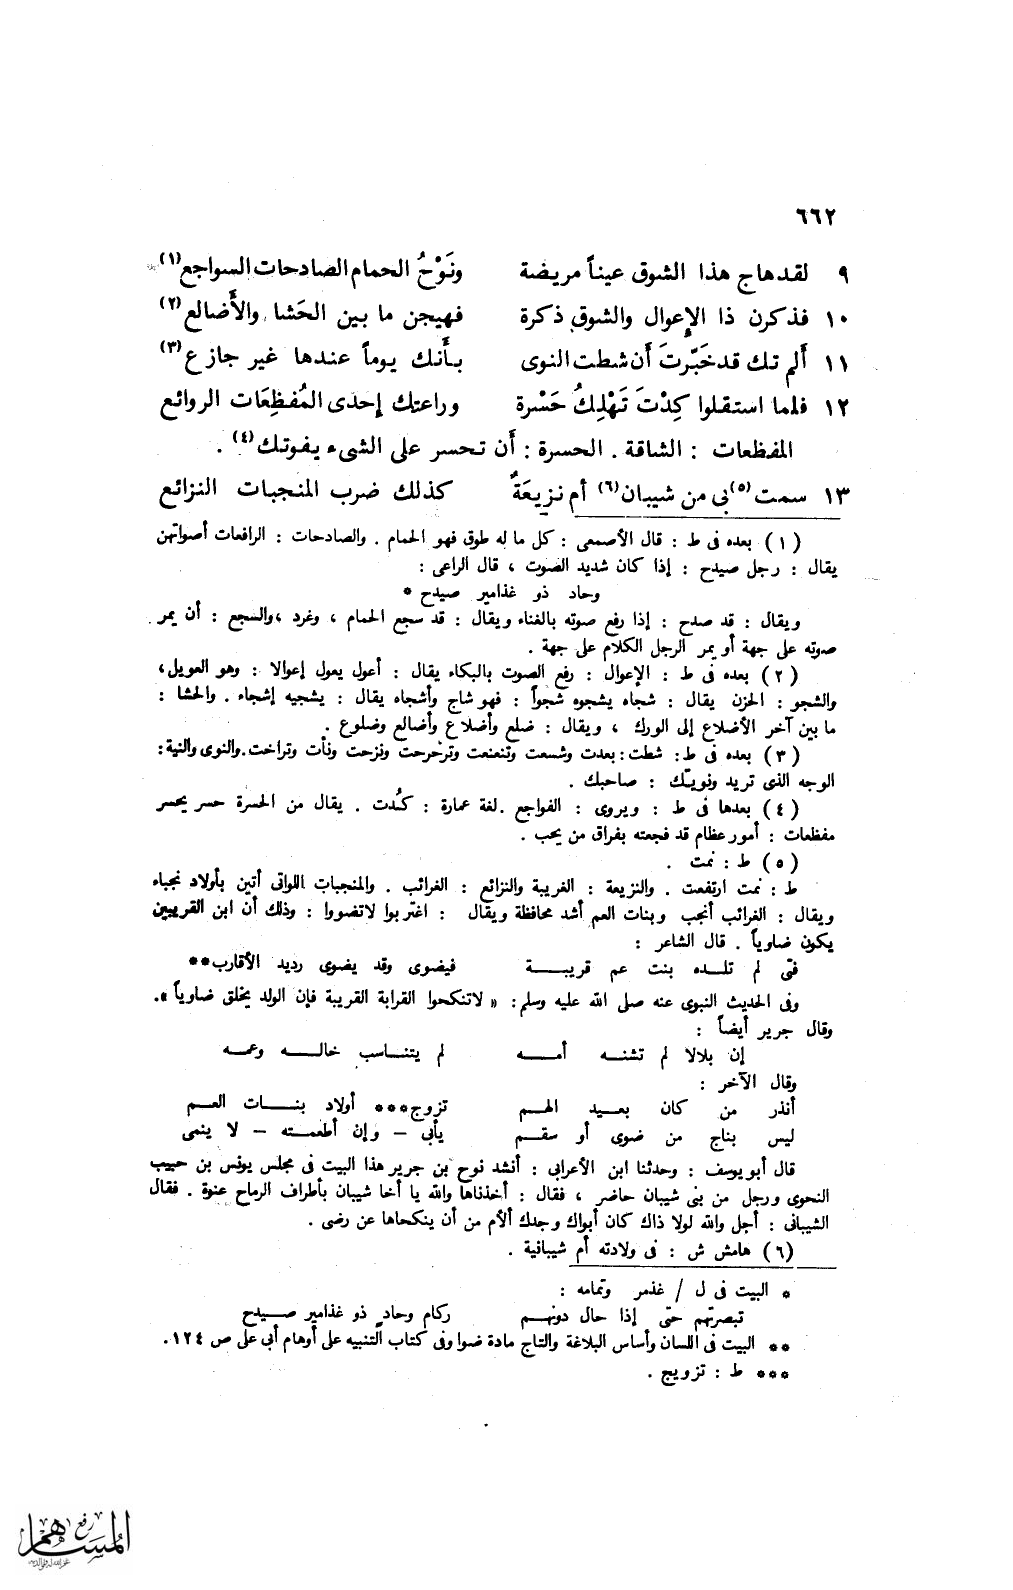 ٦٦٢
٩ لقد هاج هذا الشوق عيناً مريضة ونَوْحُ الحمام الصادحات السواجع(١)
١٠ فذكرن ذا الإعوال والشوق ذكرة فهيجن ما بين الحَشا والأَضالع(٢)
١١ أَلم تك قد خَبّرتَ أَن شطت النوى بأَنك يوماً عندها غير جازع(٣)
١٢ فلما استقلوا كِدْتَ تَهْلِكُ حَسْرة وراعتك إحدى المُفظِعَات الروائع
المفظعات : الشاقة . الحسرة : أَن تحسر على الشىء يفوتك(٤) .
١٣ سمت(٥) بى من شيبان(٦) أم نزيعَةٌ كذلك ضرب المنجبات النزائع
(١) بعده فى ط : قال الأصمعى : كل ما له طوق فهو الحمام . والصادحات : الرافعات أصواتهن
يقال : رجل صيدح : إذا كان شديد الصوت ، قال الراعى :
وحاد ذو غذامير صيدح *
ويقال : قد صدح : إذا رفع صوته بالغناء ويقال : قد سجع الحمام ، وغرد ، والسجع : أن يمر
صوته على جهة أو يمر الرجل الكلام على جهة .
(٢) بعده فى ط : الإعوال : رفع الصوت بالبكاء يقال : أعول يعول إعوالا : وهو العويل ،
والشجو : الحزن يقال : شجاه يشجوه شجواً : فهو شاج وأشجاه يقال : يشجيه إشجاء . والحشا :
ما بين آخر الأضلاع إلى الورك ، ويقال : ضلع وأضلاع وأضالع وضلوع .
(٣) بعده فى ط : شطت : بعدت وشسعت وتنعنعت وتزحزحت ونزحت ونأت وتراخت . والنوى والنية :
الوجه الذى تريد ونويـّك : صاحبك .
(٤) بعدها فى ط : ويروى : الفواجع . لغة عمارة : كُدت . يقال من الحسرة حسر يحسر
مفظعات : أمور عظام قد فجعته بفراق من يحب .
(٥) ط : نمت .
ط : نمت ارتفعت . والنزيعة : الغريبة والنزائع : الغرائب . والمنجبات اللواتى أتين بأولاد نجباء
ويقال : الغرائب أنجب وبنات العم أشد محافظة ويقال : اغتربوا لاتضووا : وذلك أن ابن القريبين
يكون ضاوياً . قال الشاعر :
فتى لم تلـده بنت عم قريبـة فيضوى وقد يضوى رديد الأقارب**
وفى الحديث النبوى عنه صلى الله عليه وسلم : « لاتنكحوا القرابة القريبة فإن الولد يخلق ضاوياً » .
وقال جرير أيضاً :
إن بلالا لم تشنه أمه لم يتناسب خاله وعمه
وقال الآخر :
أنذر من كان بعيد الهم تزوج*** أولاد بنات العم
ليس بناج من ضوى أو سقم يأبى – وإن أطعمته – لا ينمى
قال أبو يوسف : وحدثنا ابن الأعرابى : أنشد نوح بن جرير هذا البيت فى مجلس يونس بن حبيب
النحوى ورجل من بنى شيبان حاضر ، فقال : أخذناها والله يا أخا شيبان بأطراف الرماح عنوة . فقال
الشيبانى : أجل والله لولا ذاك كان أبواك وجدك ألأم من أن ينكحاها عن رضى .
(٦) هامش ش : فى ولادته أم شيبانية .
* البيت فى ل / غذمر وتمامه :
تبصرتهم حتى إذا حال دونهم ركام وحاد ذو غذامير صيدح
** البيت فى اللسان وأساس البلاغة والتاج مادة ضوا وفى كتاب التنبيه على أوهام أبى على ص ١٢٤ .
*** ط : تزويج .